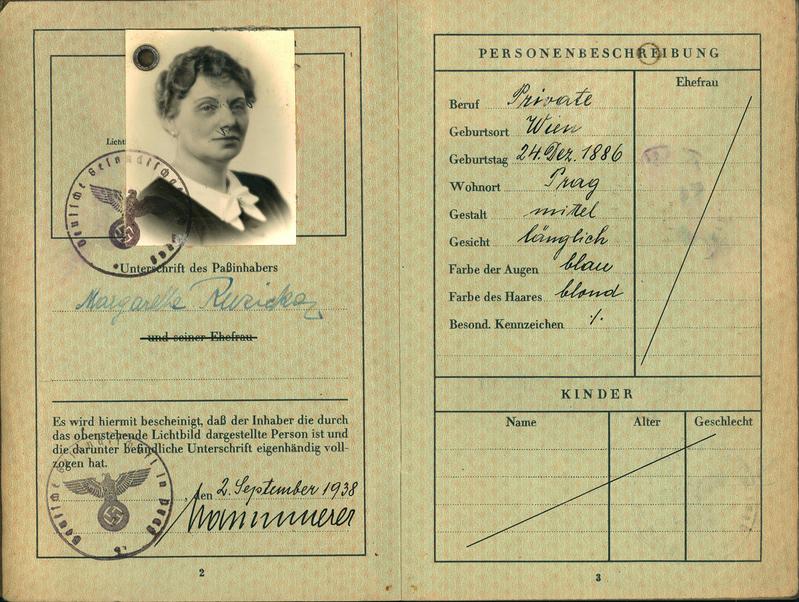 Lichtb
Deutsche Gesandtschaft
Prag
Unterschrift des Paßinhabers
Margarette Ruzicka
und seiner Ehefrau
Es wird hiermit bescheinigt, daß der Inhaber die durch
das obenstehende Lichtbild dargestellte Person ist und
die darunter befindliche Unterschrift eigenhändig voll-
zogen hat.
Deutsche Gesandtschaft in Prag
, den 2. September 1938
2
PERSONENBESCHREIBUNG
Ehefrau
Beruf Private
Geburtsort Wien
Geburtstag 24. Dez. 1886
Wohnort Prag
Gestalt mittel
Gesicht länglich
Farbe der Augen blau
Farbe des Haares blond
Besond. Kennzeichen ./.
KINDER
Name Alter Geschlecht
3